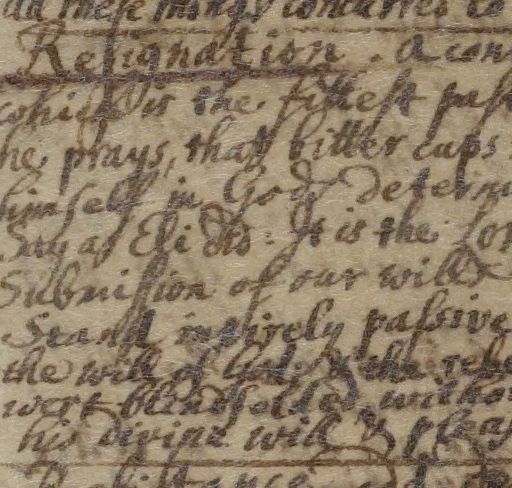 all these things concurres to
Resignation. A con
which is the fittest pas
he prays, that bitter cups
himself in Gods determ
Say as Eli did. It is the Lor
Submission of our wills
Stand intirely passive
the will of God, & the rebe
wert blindfolded, witho
his divine will & pleas